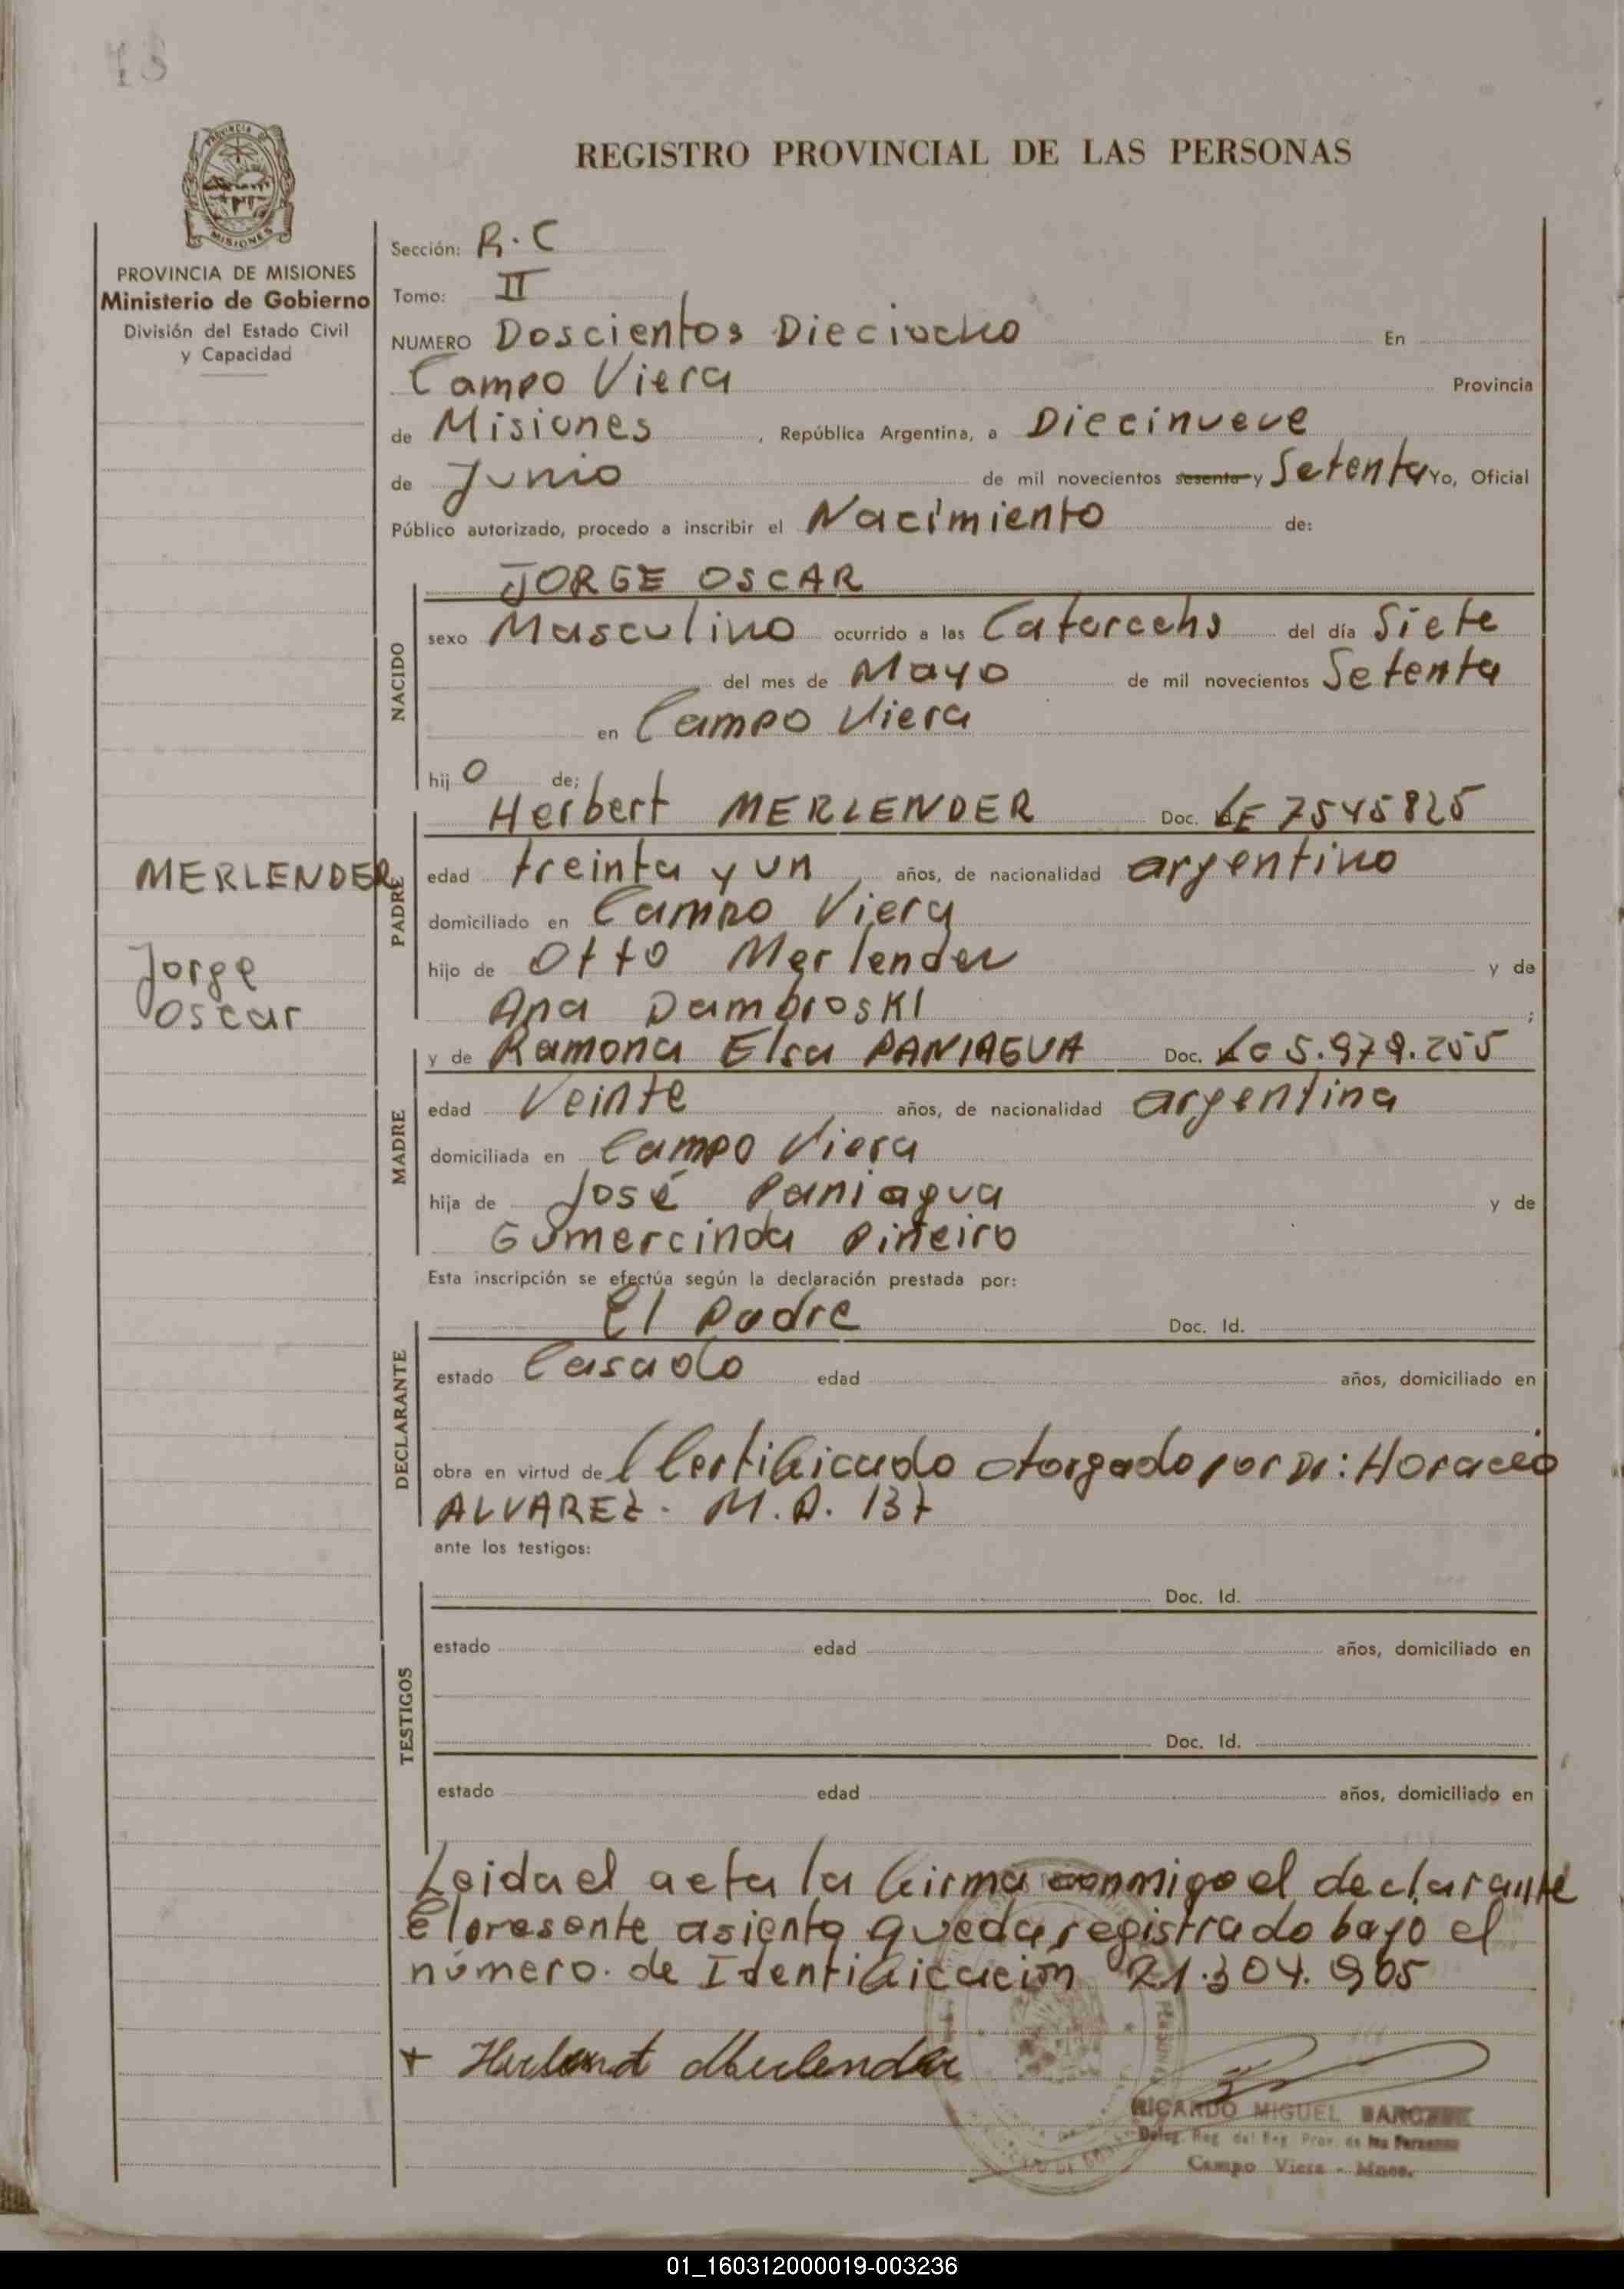 73
REGISTRO PROVINCIAL DE LAS PERSONAS
PROVINCIA DE MISIONES
Ministerio de Gobierno
División del Estado Civil
y Capacidad
Sección: R.C
Tomo: II
NUMERO Doscientos Dieciocho En
Campo Viera Provincia
de Misiones, República Argentina, a Diecinueve
de Junio de mil novecientos sesenta y Setenta Yo, Oficial
Público autorizado, procedo a inscribir el Nacimiento de:
NACIDO
JORGE OSCAR
sexo Masculino ocurrido a las Catorcehs del día Siete
del mes de Mayo de mil novecientos Setenta
en Campo Viera
hij o de;
PADRE
Herbert MERLENDER Doc. LE 7545825
edad treinta y un años, de nacionalidad argentino
domiciliado en Campo Viera
hijo de Otto Merlender y de
Ana Dambroski ;
MERLENDER
Jorge
Oscar
MADRE
y de Ramona Elsa PANIAGUA Doc. LC 5.979.255
edad Veinte años, de nacionalidad argentina
domiciliada en Campo Viera
hija de José Paniagua y de
Gumercinda Piñeiro
Esta inscripción se efectúa según la declaración prestada por:
DECLARANTE
El Padre Doc. Id.
estado Casado edad años, domiciliado en
obra en virtud de Certificado otorgado por Dr: Horacio
ALVAREZ - M.P. 137
ante los testigos:
TESTIGOS
Doc. Id.
estado edad años, domiciliado en
Doc. Id.
estado edad años, domiciliado en
Leida el acta la firma conmigo el declarante
El presente asiento queda registrado bajo el
número de Identificación 21.304.905
+ Herbert Merlender
RICARDO MIGUEL
Deleg. Reg. del Reg. Prov. de las Personas
Campo Viera - Mnes.
01_160312000019-003236